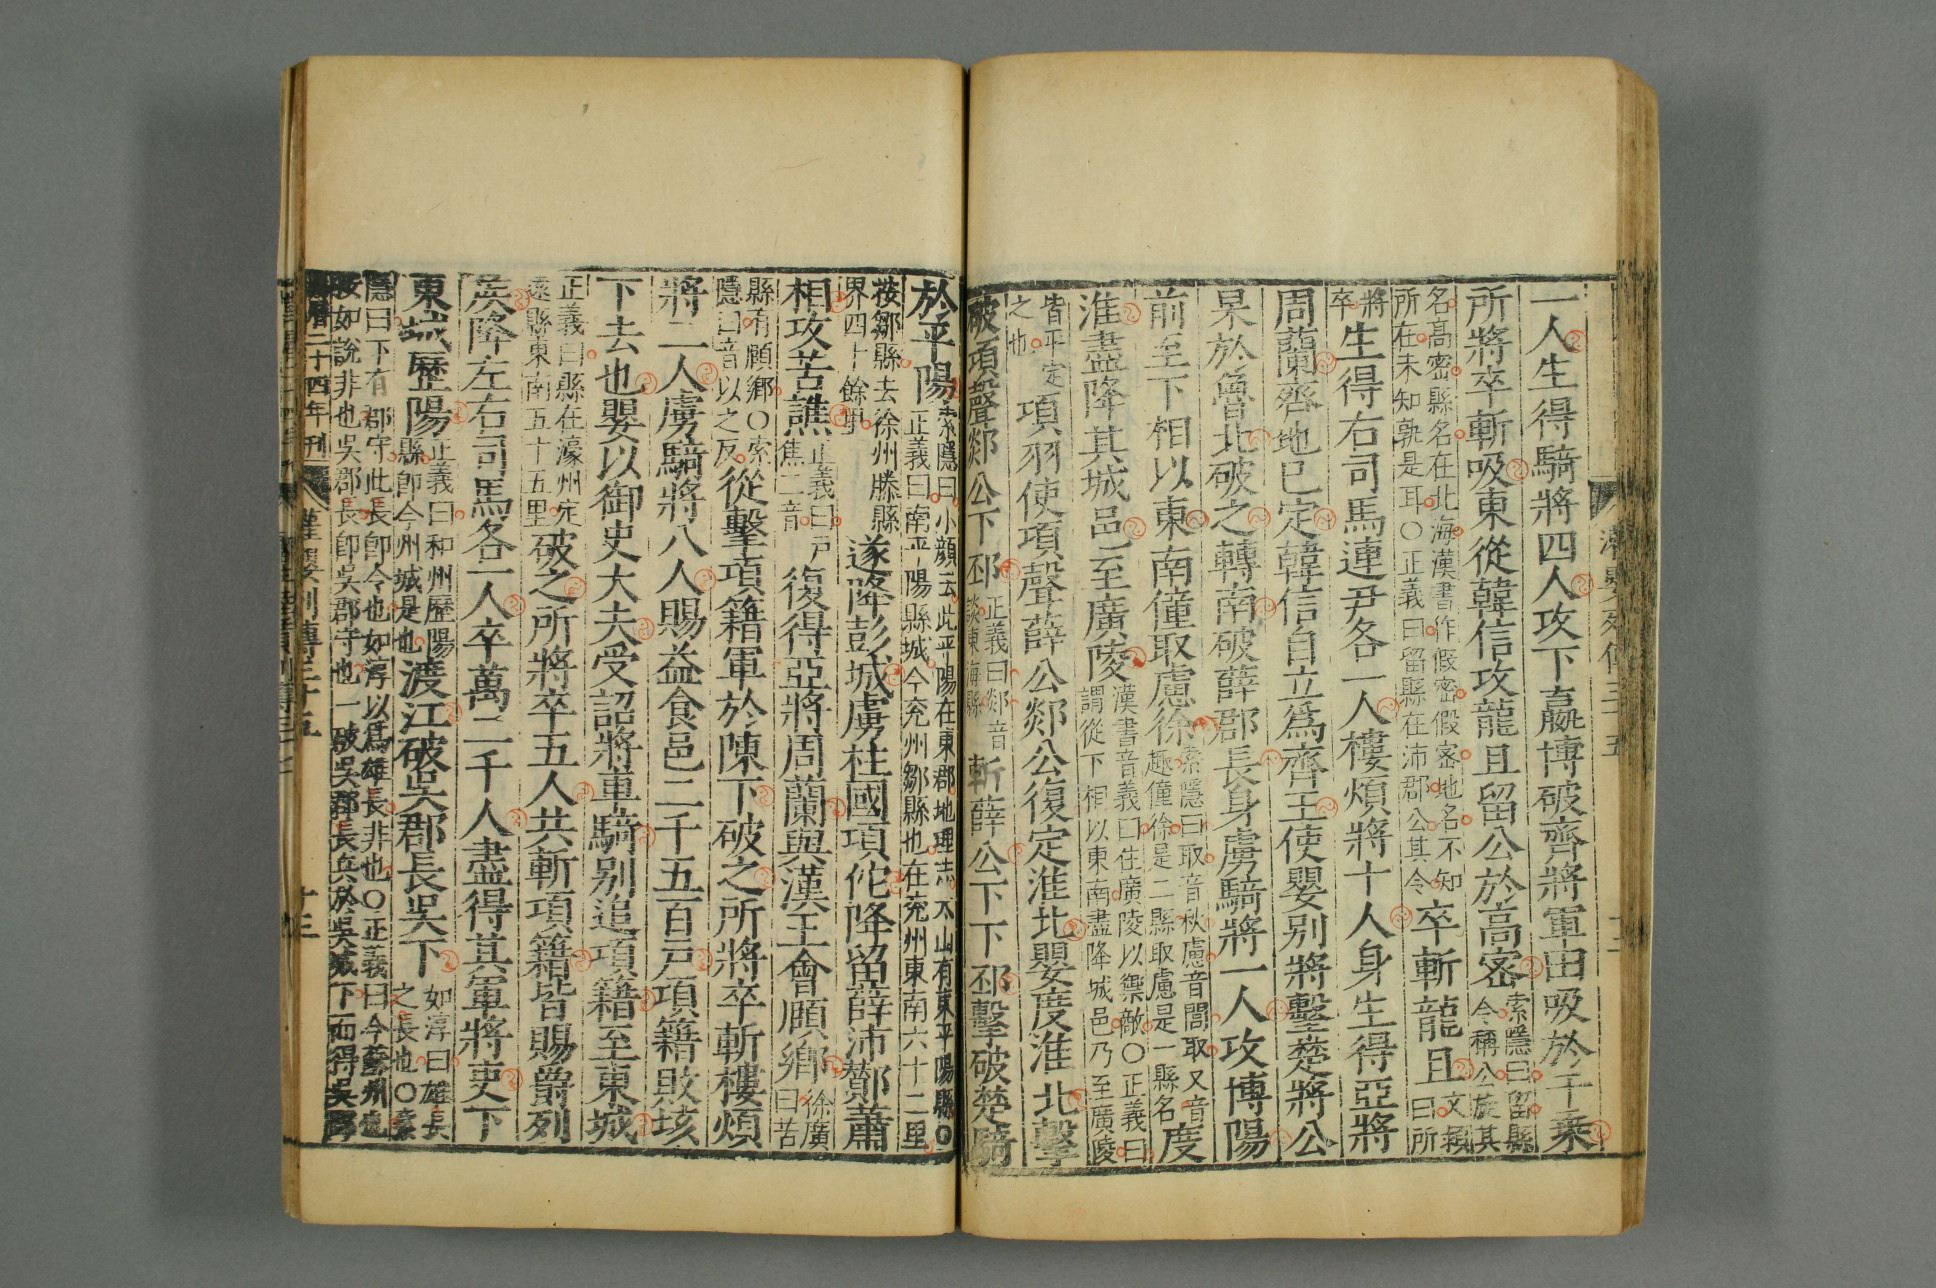 一人生得騎將四人攻下嬴博破齊將軍田吸於千乘
所將卒斬吸東從韓信攻龍且留公於高密索隱曰留縣令稱公旋其
名高密縣名在北海漢書作假密假密地名不知所在未知孰是耳○正義曰留縣在沛郡公其令卒斬龍且文穎曰所
將卒生得右司馬連尹各一人樓煩將十人身生得亞將
周蘭齊地已定韓信自立爲齊王使嬰別將擊楚將公
杲於魯北破之轉南破薛郡長身虜騎將一人攻博陽
前至下相以東南僮取慮徐索隱曰取音秋慮音閭取又音趣僮徐是二縣取慮是一縣名度
淮盡降其城邑至廣陵漢書音義曰住廣陵以禦敵○正義曰謂從下相以東南盡降城邑乃至廣陵
皆平定之也項羽使項聲薛公郯公復定淮北嬰度淮北擊
破項聲郯公下邳正義曰郯音談東海縣斬薛公下下邳擊破楚騎
於平陽索隱曰小顔云此平陽在東郡地理志太山有東平陽縣○正義曰南平陽縣城今兖州鄒縣也在兖州東南六十二里
按鄒縣去徐州滕縣界四十餘里遂降彭城虜柱國項佗降留薛沛酇蕭
相攻苦譙正義曰戸焦二音復得亞將周蘭與漢王會頤鄉徐廣曰苦
縣有頤鄉○索隱曰音以之反從擊項籍軍於陳下破之所將卒斬樓煩
將二人虜騎將八人賜益食邑二千五百戸項籍敗垓
下去也嬰以御史大夫受詔將車騎別追項籍至東城
正義曰縣在濠州定遠縣東南五十五里破之所將卒五人共斬項籍皆賜爵列
侯降左右司馬各一人卒萬二千人盡得其軍將吏下
東城歷陽正義曰和州歷陽縣即今州城是也渡江破吳郡長吳下如淳曰雄長之長也○索
隱曰下有郡守此長即今也如淳以爲雄長非也○正義曰今蘇州也按如說非也吳郡長即吳郡守也一破吳郡長兵於吳城下而得吳郡
萬曆二十四年刊 灌嬰列傳三十五 十三